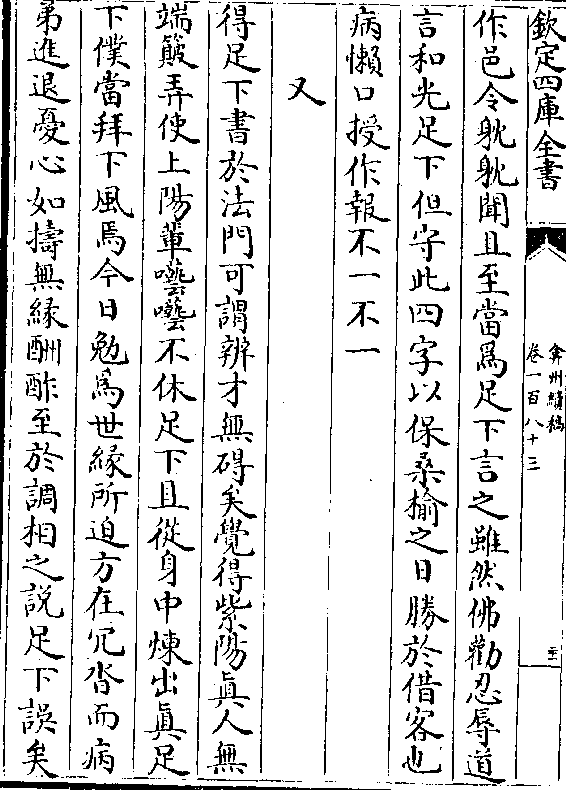 欽定四庫全書
弇州續稿
卷一百八十三
作邑令躭躭聞且至當為足下言之雖然佛勸忍辱道
言和光足下但守此四字以保桑榆之日勝於借客也
病懶口授作報不一不一
又
得足下書於法門可謂辨才無碍矣覺得紫陽真人無
端簸弄使上陽輩囈囈不休足下且從身中煉出真足
下僕當拜下風焉今日勉為世緣所迫方在冗沓而病
弟進退憂心如擣無緣酬酢至於調相之説足下誤矣